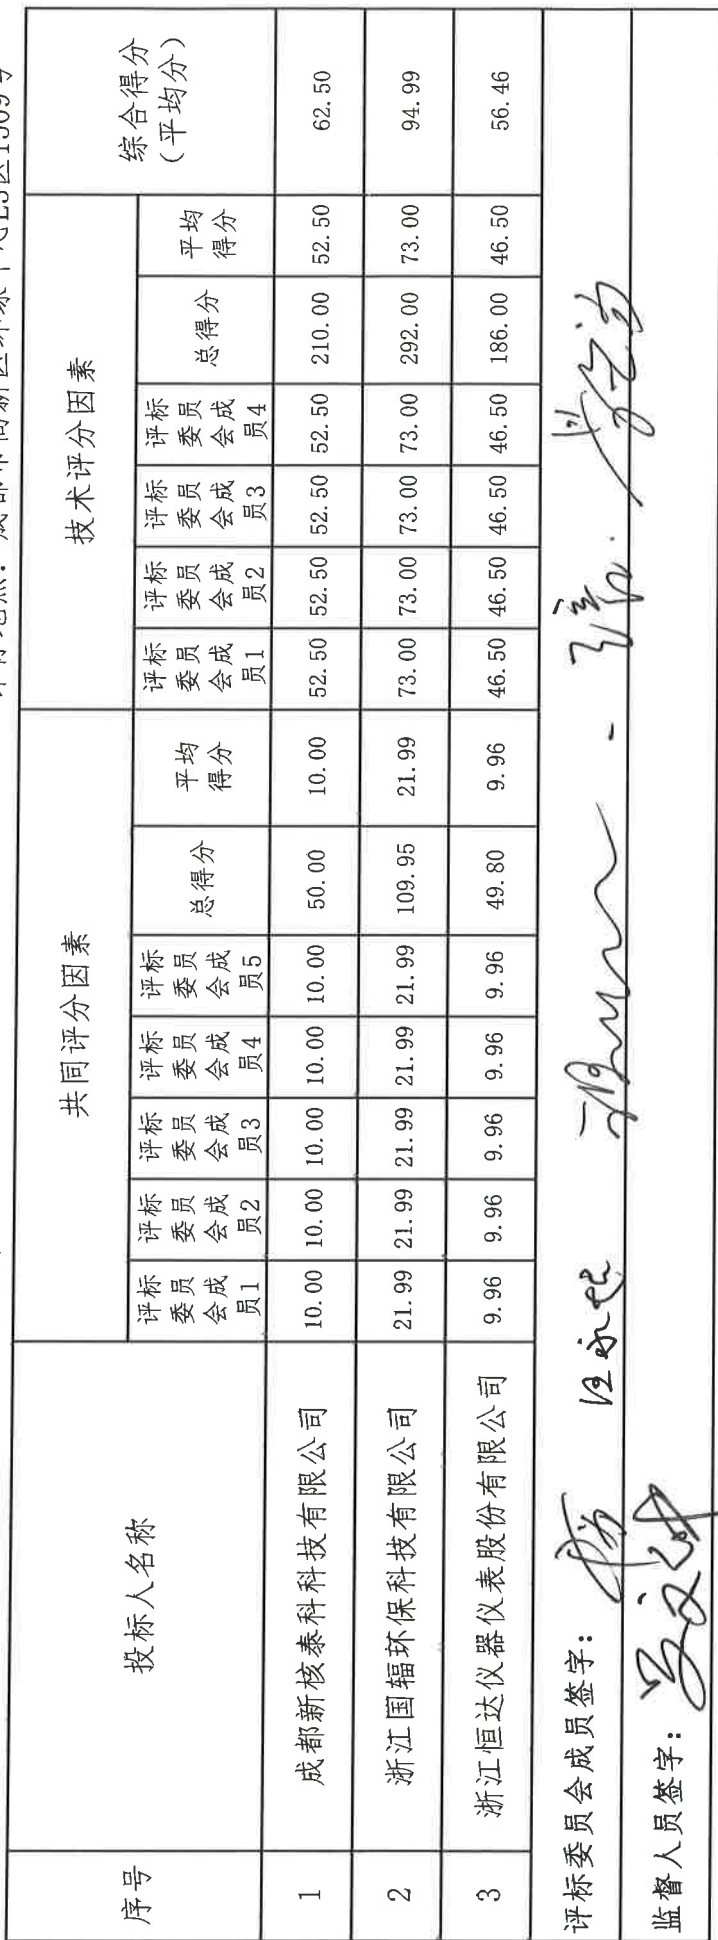 序号 投标人名称 共同评分因素 技术评分因素 综合得分(平均分)
评标委员会成员1 评标委员会成员2 评标委员会成员3 评标委员会成员4 评标委员会成员5 总得分 平均得分 评标委员会成员1 评标委员会成员2 评标委员会成员3 评标委员会成员4 总得分 平均得分
1 成都新核泰科科技有限公司 10.00 10.00 10.00 10.00 10.00 50.00 10.00 52.50 52.50 52.50 52.50 210.00 52.50 62.50
2 浙江国辐环保科技有限公司 21.99 21.99 21.99 21.99 21.99 109.95 21.99 73.00 73.00 73.00 73.00 292.00 73.00 94.99
3 浙江恒达仪器仪表股份有限公司 9.96 9.96 9.96 9.96 9.96 49.80 9.96 46.50 46.50 46.50 46.50 186.00 46.50 56.46
评标委员会成员签字：
监督人员签字：